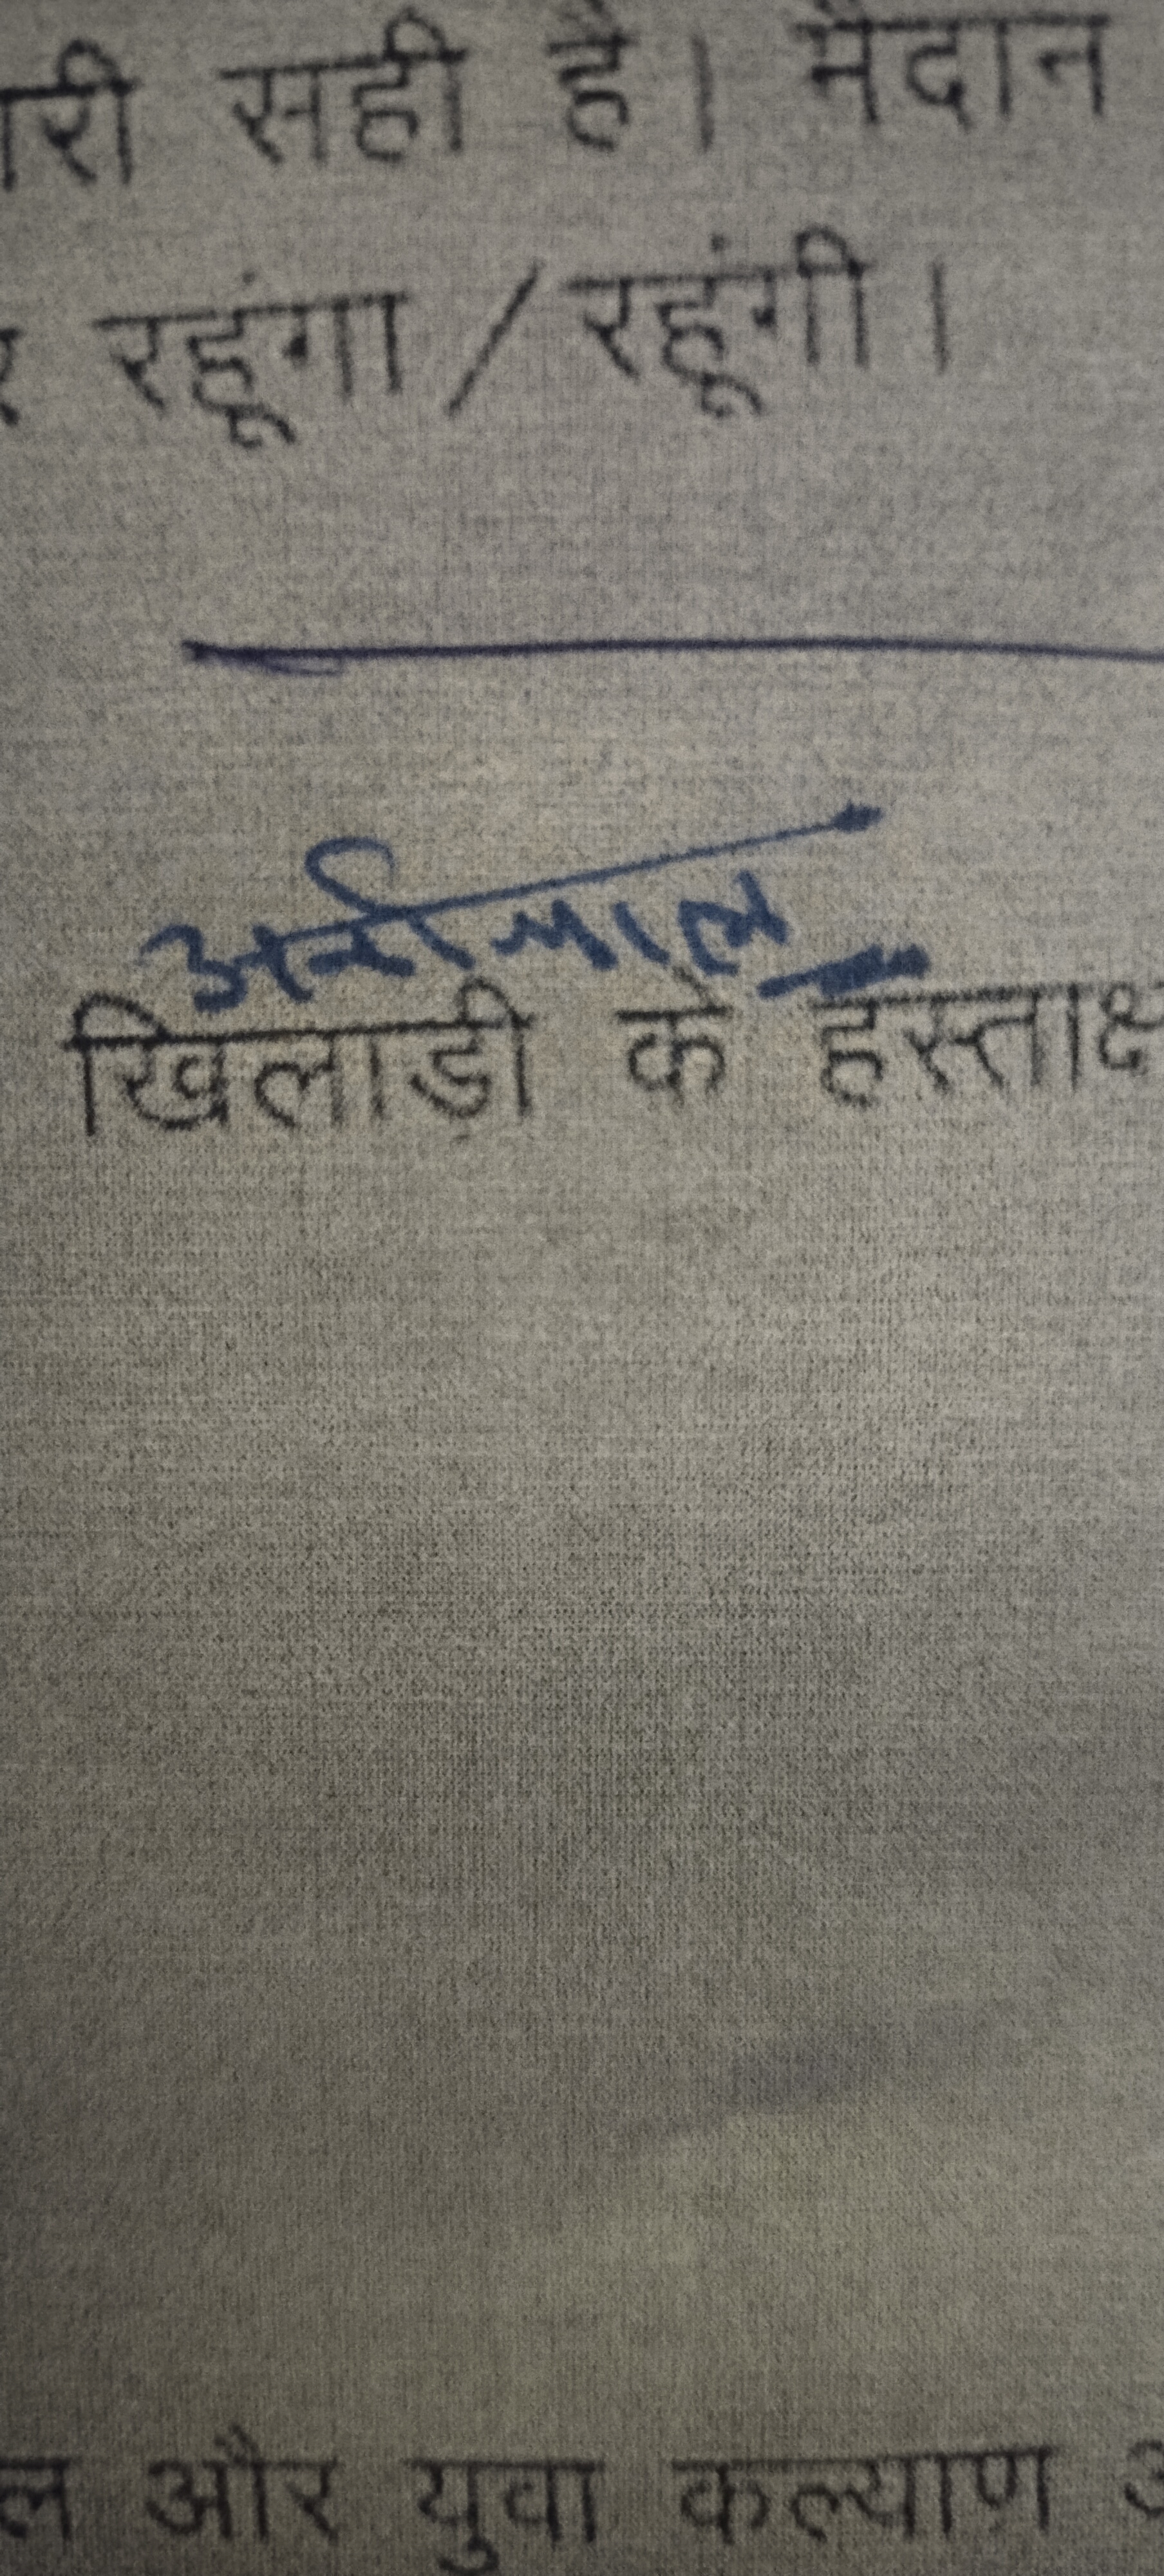 री सही है। मैदान
रहूंगा / रहूंगी।
खिलाड़ी के हस्ताक्ष
ल और युवा कल्याण